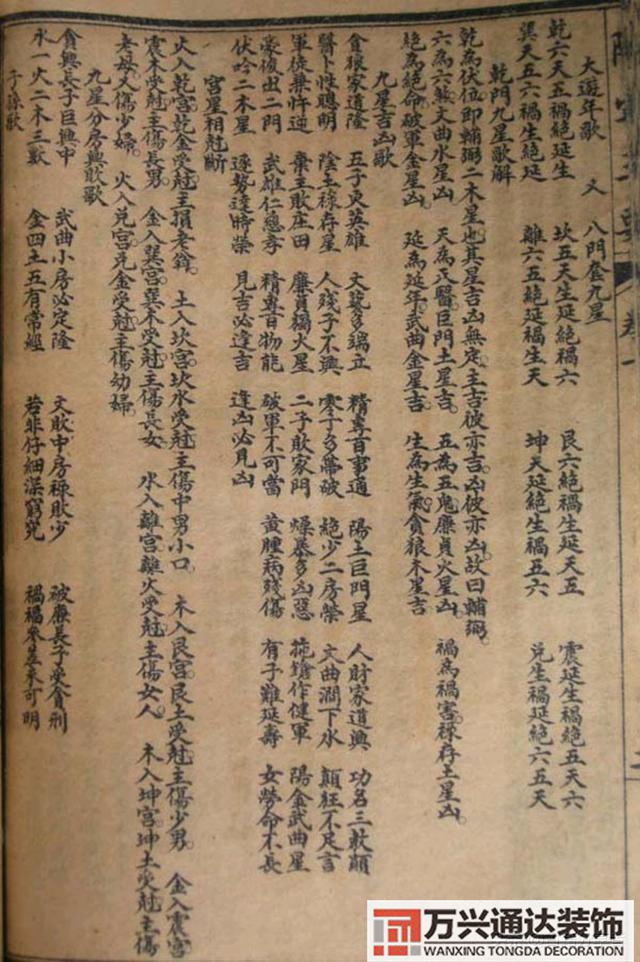 大遊年歌 又 八門套九星
乾六天五禍絶延生 坎五天生延絶禍六 艮六絶禍生延天五 震延生禍絶五天六
巽天五六禍生絶延 離六五絶延禍生天 坤天延絶生禍五六 兌生禍延絶六五天
乾門九星歌解
乾為伏位即輔弼二木星也其星吉凶無定主吉彼亦吉凶彼亦凶故曰輔弼
六為六煞文曲水星凶 天為天醫巨門土星吉 五為五鬼廉貞火星凶 禍為禍害祿存土星凶
絶為絶命破軍金星凶 延為延年武曲金星吉 生為生氣貪狼木星吉
九星吉凶歌
貪狼家道隆 五子更英雄 文藝多端立 精專百事通 陽土巨門星 人財家道興 功名三教顯
醫卜性聰明 陰土祿存星 人殘子不興 零子多帶破 絶少二房榮 文曲澗下水 顛狂不足言
軍徒兼忤逆 棄主敗庄田 廉貞獨火星 二子敗家門 燥暴多凶惡 拖鎗作健軍 陽金武曲星
豪俊出二門 武雄仁慈孝 精專百物能 破軍不可當 黃腫病殘傷 有子難延壽 女勞命不長
伏吟二木星 逐勢達時榮 見吉必逢吉 逢凶必見凶
宮星相尅斷
火入乾宮乾金受尅主損老翁 土入坎宮坎水受尅主傷中男小口 木入艮宮艮土受尅主傷少男 金入震宮
震木受尅主傷長男 金入巽宮巽木受尅主傷長女 水入離宮離火受尅主傷女人 木入坤宮坤土受尅主傷
老母又傷少婦 火入兌宮兌金受尅主傷幼婦
九星分房興敗歌
貪興長子巨興中 武曲小房必定隆 文敗中房祿敗少 破廉長子受貧刑
水一火二木三數 金四土五有常經 若非仔細深窮究 禍福參差未可明
子孫歌
万兴通达装饰
WANXING TONGDA DECORATION